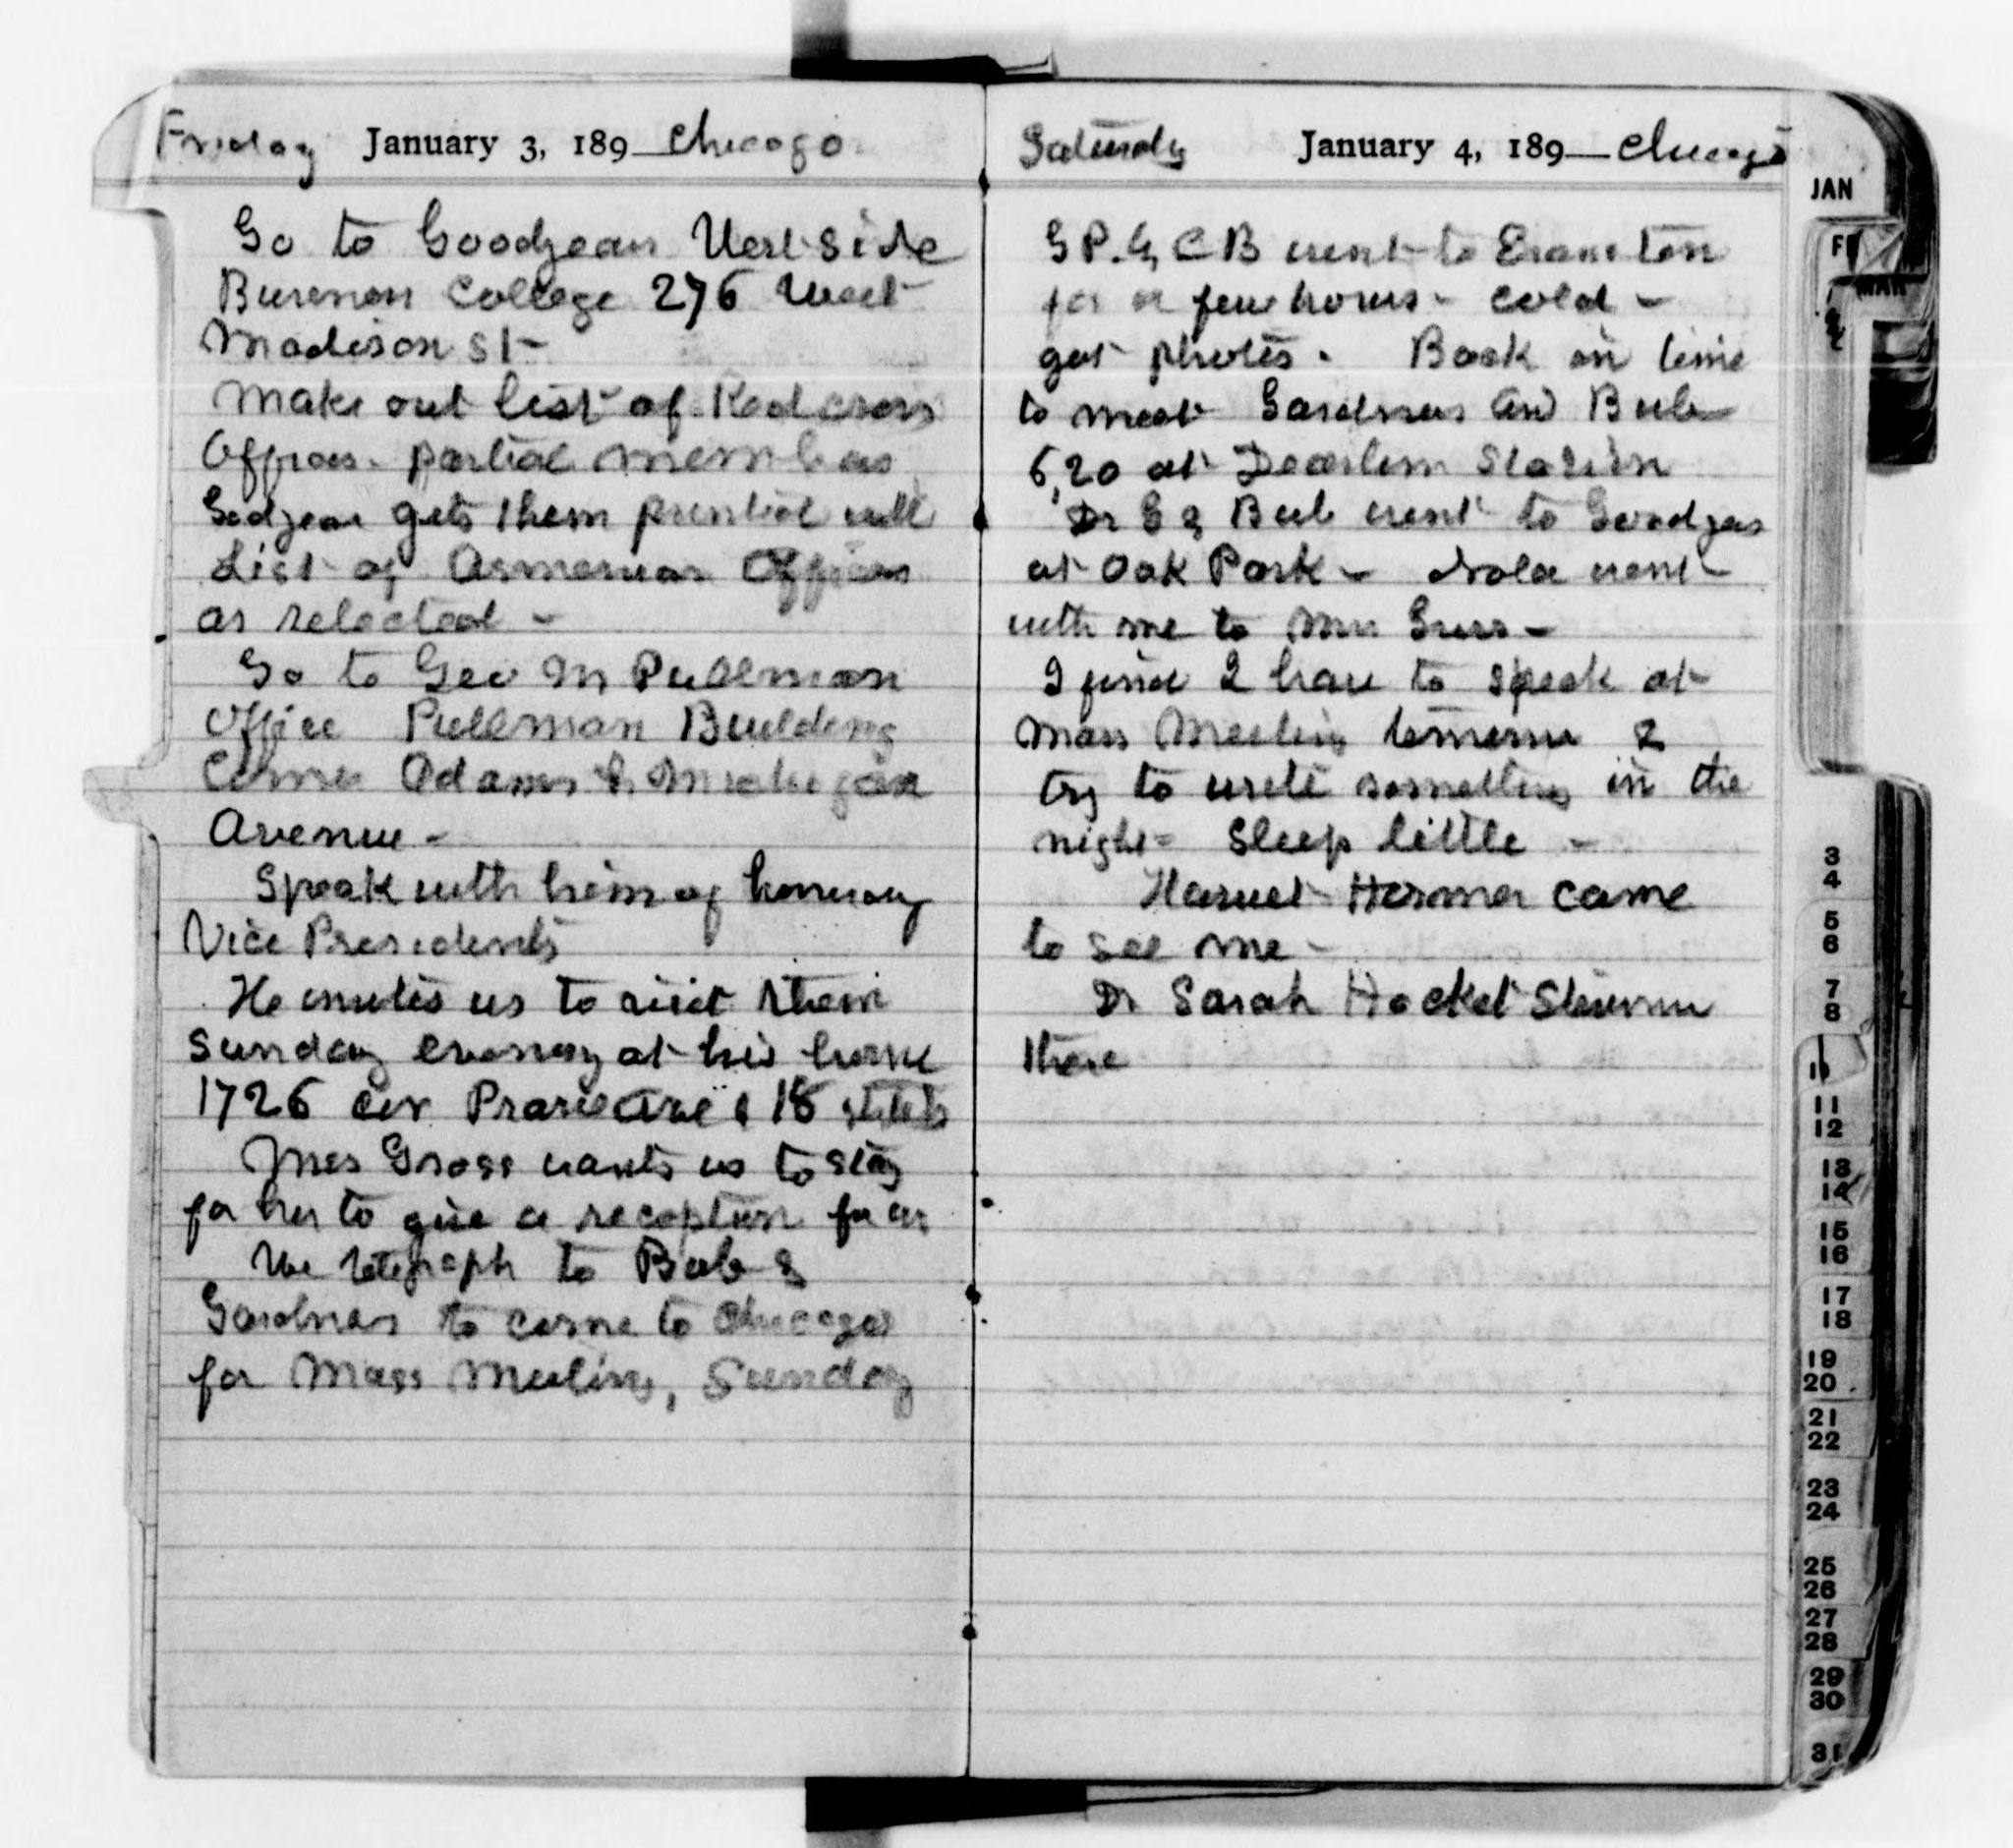 Friday January 3, 189_ Chicago
Go to Goodyear West Side
Business College 276 West
Madison St -
Make out list of Red Cross
Officers. partial members
Godyear gets them printed with
List of Armenian Officers
as selected -
Go to Geo M Pullman
Office Pullman Building
Corner Adams & Michigan
Avenue -
Speak with him of honorary
Vice Presidents
He invites us to visit them
Sunday evening at his home
1726 cor Prarie Ave & 18
Mrs Gross wants us to stay
for her to give a reception for us
We telegraph to Bub &
Gardners to come to Chicago
for Mass Meeting, Sunday
Saturday January 4, 189_ Chicago
G P. & C B went to Evanston
for a few hours - cold -
got photos. Back in time
to meet Gardners and Bub
6,20 at Dearborn Station
Dr G & Bub went to Goodyears
at Oak Park - went
with me to Mrs
I find I have to speak at
Mass Meeting tomorrow &
try to write something in the
night - Sleep little -
Harriet Hosmer came
to see me -
Dr Sarah Hacket Stevenson
there
JAN
MAR
3
4
5
6
7
8
11
12
13
14
15
16
17
18
19
20
21
22
23
24
25
26
27
28
29
30
31